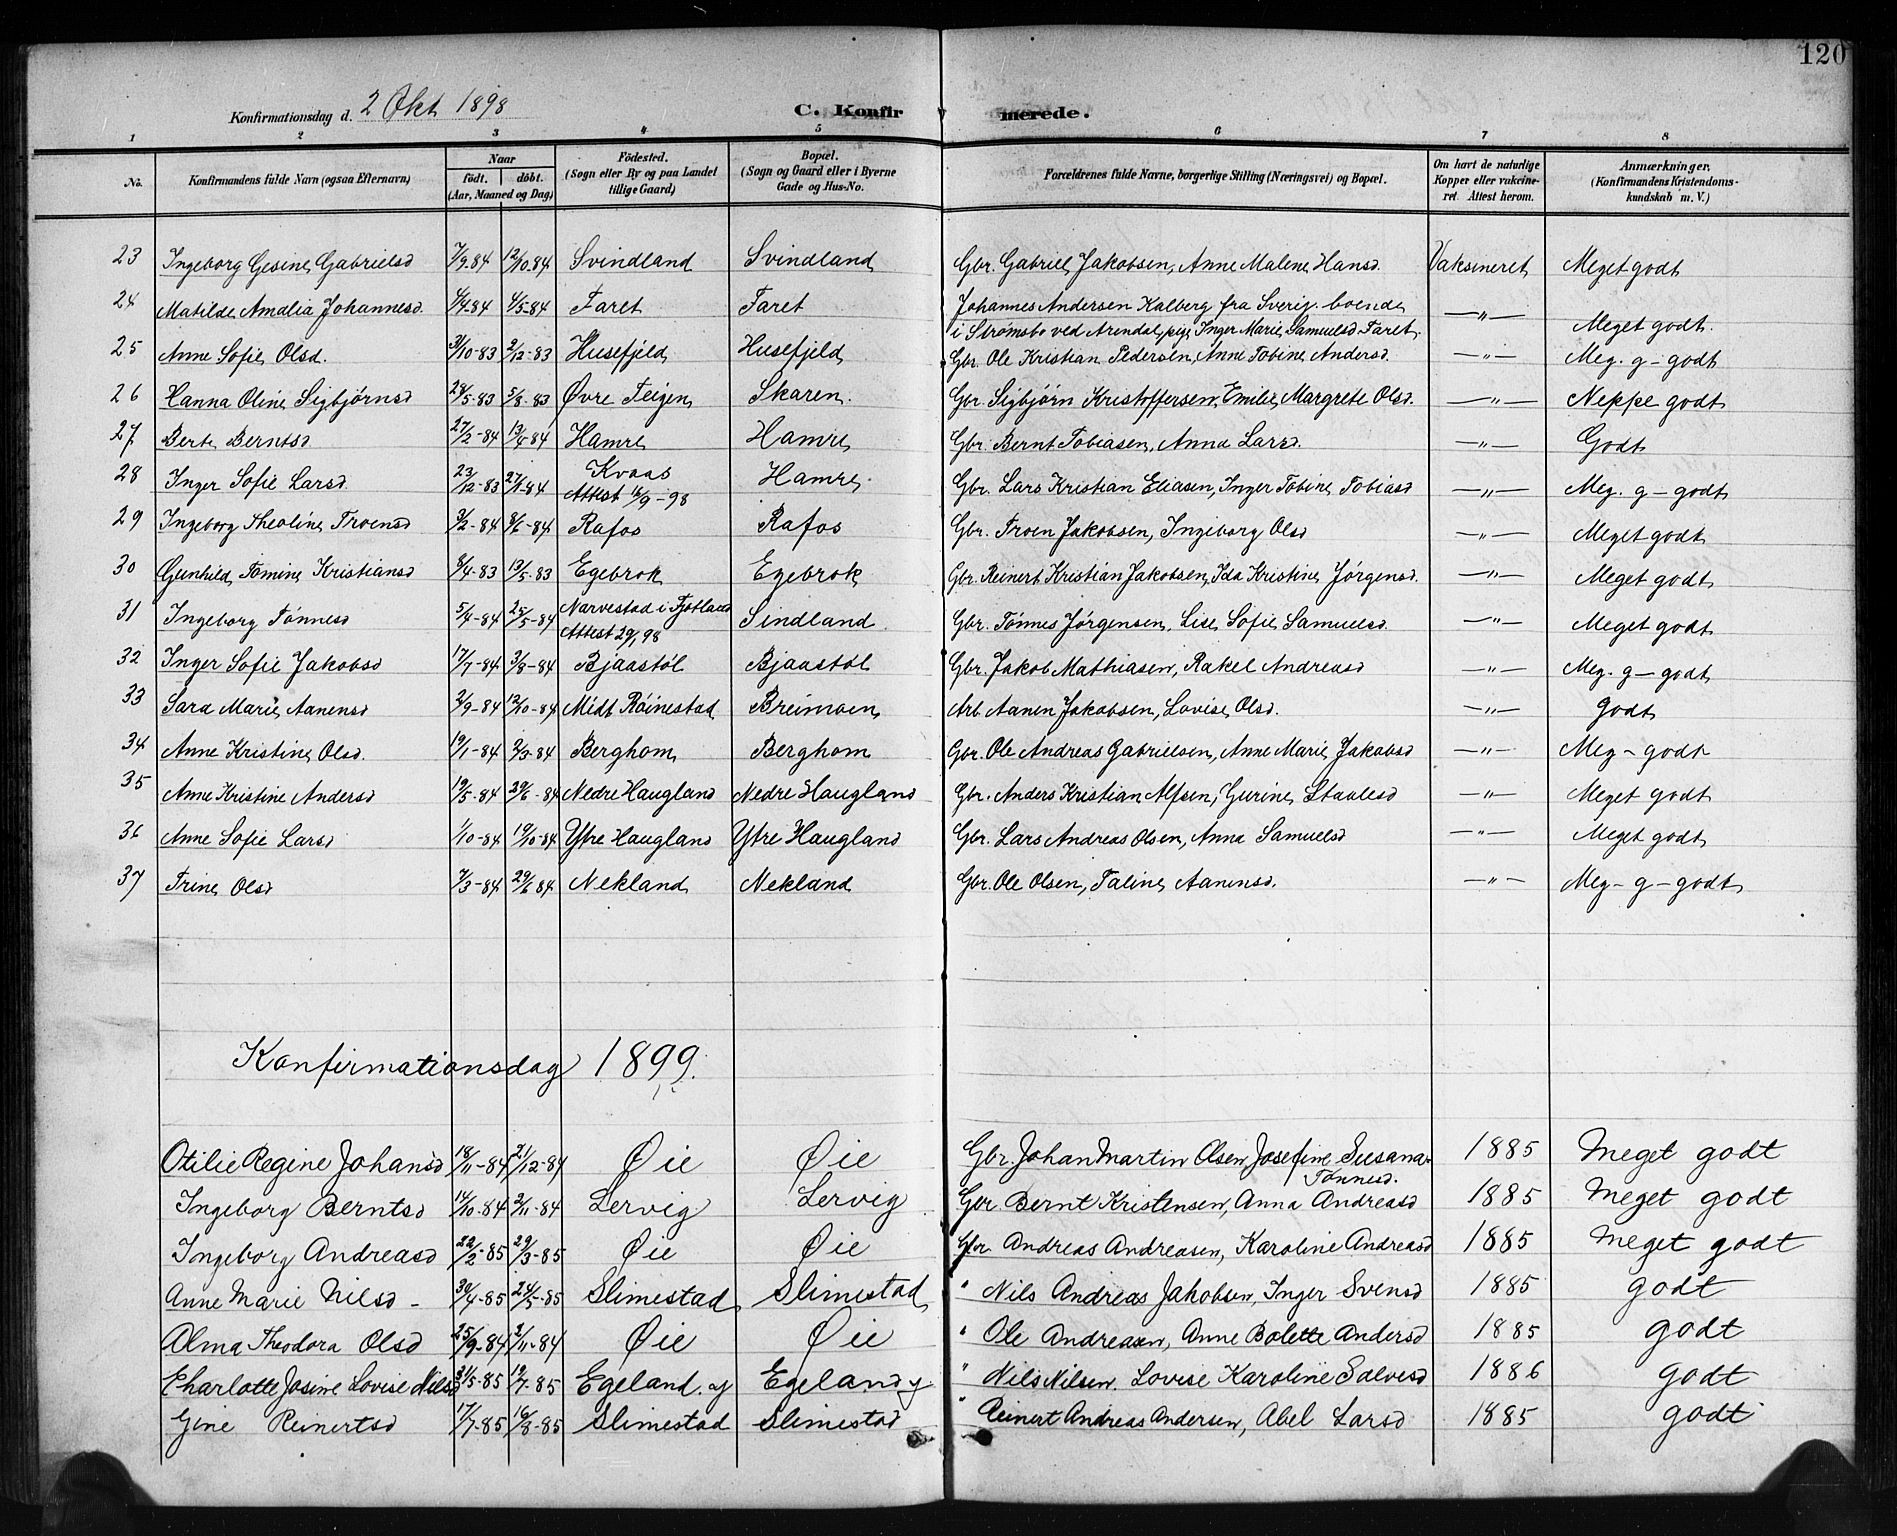 120
Konfirmationsdag d. 2 Okt 1898 C. Konfirmerede.
1 2 3 4 5 6 7 8
No. Konfirmandens fulde Navn (ogsaa Efternavn) Naar födt. döbt. (Aar, Maaned og Dag) Födested. (Sogn eller By og paa Landet tillige Gaard) Bopæl. (Sogn og Gaard eller i Byerne Gade og Hus-No. Forældrenes fulde Navne, borgerlige Stilling (Næringsvei) og Bopæl. Om havt de naturlige Kopper eller vakcineret. Attest herom. Anmærkninger. (Konfirmandens Kristendomskundskab m. V.)
23 Ingeborg Gesine Gabrielsd 7/9.84 12/10.84 Svindland Svindland Gbr. Gabriel Jakobsen, Anne Malene Hansd. Vaksineret Meget godt
24 Matilde Amalia Johannesd. 4/4-84 4/5-84 Faret Faret Johannes Andersen Kalberg fra Sverig. boende
i Strømsbo ved Arendal, pige Inger Marie Samuelsd Faret. —"— Meget godt.
25 Anne Sofie Olsd. 31/10-83 2/12-83 Husefjeld Husefjeld Gbr. Ole Kristian Pedersen, Anne Tobine Andersd —"— Meg. g- godt
26 Hanna Oline Sigbjørnsd 28/5-83 5/8-83 Øvre Feigen Skaren. Gbr. Sigbjörn Kristoffersen, Emilie Margrete Olsd. —"— Neppe godt
27 Berte Berntsd 27/2-84 13/4-84 Hamre Hamre Gbr. Bernt Tobiasen, Anna Larsd. —"— Godt
28 Inger Sofie Larsd. 23/12-83 27/1-84 Kvaas Hamre. Gbr. Lars Kristian Eliasen, Inger Tobine Tobiasd —"— Meg. g- godt
Attest 16/9-98
29 Ingeborg Theoline Troensd 3/2-84 Rafos Rafos Gbr. Troen Jakobsen, Ingeborg Olsd —"— Meget godt
30 Gunhild Tomine Kristiansd 8/4-83 13/5-83 Egebrok Egebrok Gbr. Reinert Kristian Jakobsen, Ida Kristine Jørgensd. —"— Meget godt
31 Ingeborg Tønnesd 5/4-84 25/5-84 Narvestad i Fjotland Sindland Gbr. Tönnes Jörgensen, Lise Sofie Samuelsd. —"— Meget godt
32 Inger Sofie Jakobsd 17/7-84 3/8-84 Bjaastöl Bjaastöl Gbr. Jakob Mathiasen, Rakel Andreasd —"— Meg. g- godt
33 Sara Marie Aanensd 2/9-84 12/10-84 Midt Röinestad Breimoen Arb Aanen Jakobsen, Lovise Olsd. —"— Godt
34 Anne Kristine Olsd. 19/1-84 2/3-84 Berghom Berghom Gbr. Ole Andreas Gabrielsen, Anne Marie Jakobsd —"— Meg- godt
35 Anne Kristine Andersd 19/5-84 29/6-84 Nedre Haugland Nedre Haugland Gbr. Anders Kristian Alfsen, Gurine Staalesd —"— Meget godt
36 Anne Sofie Larsd 1/10-84 19/10-84 Ytre Haugland Ytre Haugland Gbr. Lars Andreas Olsen, Anna Samuelsd —"— Meget godt
37 Trine Olsd 7/3-84 29/6 84 Nekland Nekland Gbr. Ole Olsen, Taline Aanensd. —"— Meg- g- godt
Konfirmationsdag 1899.
Otilie Regine Johansd 18/11-84 21/12-84 Øie Øie Gbr. Johan Martin Olsen, Josefine Susana Tønnesd. 1885 Meget godt
Ingeborg Berntsd 14/10-84 2/11-84 Lervig Lervig Gbr Bernt Kristensen, Anna Andreasd 1885 Meget godt
Ingeborg Andreasd 22/2-85 29/3-85 Øie Øie Gbr. Andreas Andreasen, Karoline Andreasd 1885 Meget godt
Anne Marie Nilsd - 30/4-85 24/5-85 Slimestad Slimestad " Nils Andreas Jakobsen, Inger Svensd 1885 godt
Alma Theodora Olsd 25/9-84 2/11-84 Øie Øie " Ole Andreasen, Anne Bolette Andersd 1885 godt
Charlotte Josine Lovise Nilsd 31/5-85 19/7-85 Egeland. y Egeland y. " Nils Nilsen. Lovise Karoline Salvesd 1886 godt
Gine Reinertsd 17/7-85 16/8-85 Slimestad Slimestad " Reinert Andreas Andersen, Abel Larsd 1885 godt